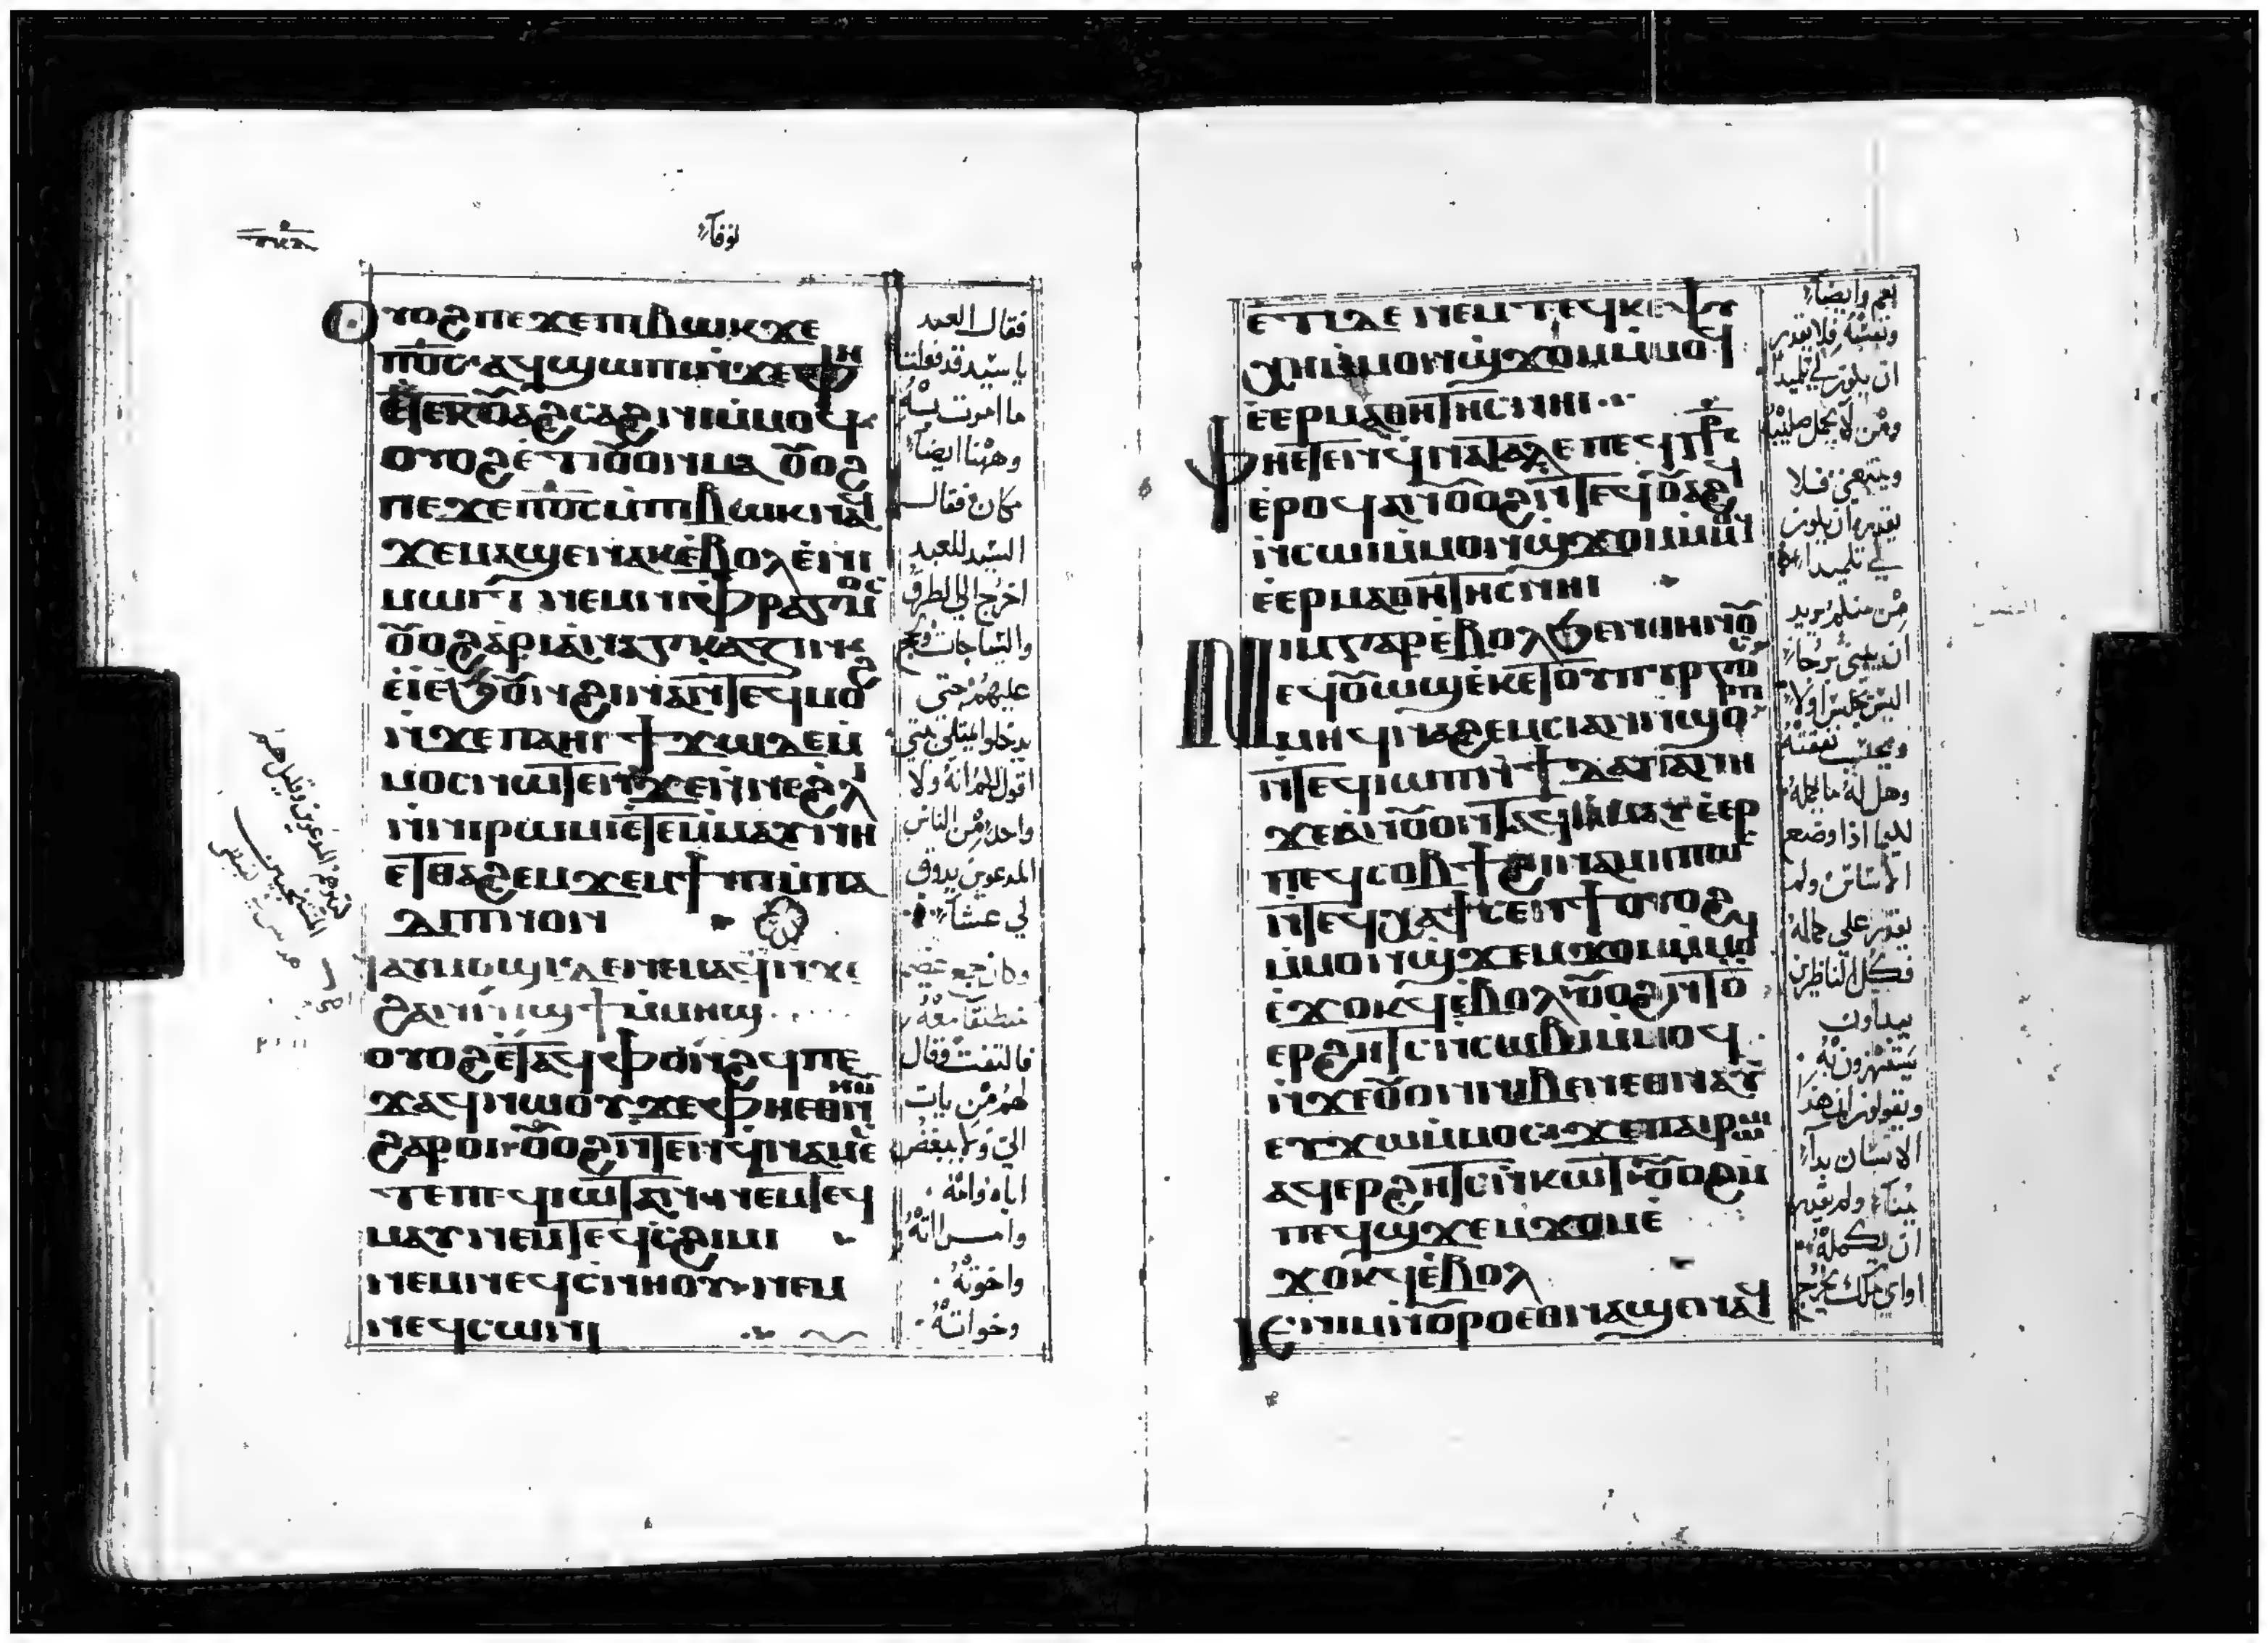 ⲟⲩⲟϩ ⲡⲉϫⲉ ⲡⲓⲃⲱⲕ ϫⲉ
ⲡϭⲟⲓⲥ ⲁϥϣⲱⲡⲓ ⲛ̇ϫⲉ ⲫⲏ
ⲉⲧⲉⲕⲟⲩⲁϩⲥⲁϩⲛⲓ ⲙ̇ⲙⲟϥ
ⲟⲩⲟϩ ⲉ̇ⲧⲓ ⲟⲩⲟⲛ ⲙⲁ ⲟⲩⲟϩ
ⲡⲉϫⲉ ⲡϭⲟⲓⲥ ⲙ̇ⲡⲓⲃⲱⲕ ⲛⲁϥ
ϫⲉ ⲙⲁϣⲉⲛⲁⲕ ⲉ̇ⲃⲟⲗ ⲉ̇ⲛⲓ
ⲙⲱⲓⲧ ⲛⲉⲙ ⲛⲓⲫⲣⲁⲅⲙⲟⲥ
ⲟⲩⲟϩ ⲁⲣⲓⲁⲛⲁⲅⲕⲁⲍⲓⲛ
ⲉ̇ⲓ̇ ⲉ̇ϧⲟⲩⲛ ϩⲓⲛⲁ ⲛ̇ⲧⲉϥⲙⲟϩ
ⲛ̇ϫⲉ ⲡⲁⲏⲓ ϯϫⲱ ⲇⲉ ⲙ̇
ⲙⲟⲥ ⲛⲱⲧⲉⲛ ϫⲉ ⲛ̇ⲛⲉϩⲗⲓ
ⲛ̇ⲛⲓⲣⲱⲙⲓ ⲉ̇ⲧⲉⲙ̇ⲙⲁⲩ ⲛⲏ
ⲉⲧⲑⲁϩⲉⲙ ϫⲉⲙϯⲡⲓ ⲙ̇ⲡⲁ
ⲇⲓⲡⲛⲟⲛ
ⲛⲁⲩⲙⲟϣⲓ ⲇⲉ ⲛⲉⲙⲁϥ ⲛ̇ϫⲉ
ϩⲁⲛⲛⲓϣϯ ⲙ̇ⲙⲏϣ
ⲟⲩⲟϩ ⲉ̇ⲧⲁϥⲫⲟⲛϩϥ ⲡⲉ
ϫⲁϥ ⲛⲱⲟⲩ ϫⲉ ⲫⲏ ⲉⲑⲛⲏⲟⲩ
ϩⲁⲣⲟⲓ ⲟⲩⲟϩ ⲛ̇ⲧⲉⲛϥⲛⲁⲙⲉ
ⲥⲧⲉ ⲡⲉϥⲓⲱⲧ ⲁⲛ ⲛⲉⲙ ⲧⲉϥ
ⲙⲁⲩ ⲛⲉⲙ ⲧⲉϥⲥϩⲓⲙⲓ
ⲛⲉⲙ ⲛⲉϥⲥⲛⲏⲟⲩ ⲛⲉⲙ
ⲛⲉϥⲥⲱⲛⲓ
فقال العبد
يا سيد قد فعلنا
ما امرت به
وههنا ايضاً
مكان فقال
السيد للعبد
اخرج الي الطرق
والسياجات ولج
عليهم حتى
يدخلوا ليمتلي بيتي
اقول لكم انه ولا
واحد من الناس
المدعوين يذوق
لي عشاً
وكان جمع عظيم
منطلقا معه
فالتفت فقال
لهم من يات
الي ولا يبغض
اباه وامه
وامراته
واخوته
وخواته
ⲉⲧⲓ ⲇⲉ ⲛⲉⲙ ⲧⲉϥⲕⲉⲯⲩ
ⲭⲏ ⲙ̇ⲙⲟⲛ ϣϫⲟⲙ ⲙ̇ⲙⲟϥ
ⲉ̇ⲉⲣⲙⲁⲑⲏⲧⲏⲥ ⲛⲏⲓ
ⲫⲏ ⲉⲧⲉⲛϥⲛⲁⲧⲁⲗⲉ ⲡⲉϥⲥⲧⲣⲟⲥ
ⲉ̇ⲣⲟϥ ⲁⲛ ⲟⲩⲟϩ ⲛ̇ⲧⲉϥⲟⲩⲁϩϥ
ⲛ̇ⲥⲱⲓ ⲙ̇ⲙⲟⲛ ϣϫⲟⲙ ⲙ̇ⲙⲟϥ
ⲉ̇ⲉⲣⲙⲁⲑⲏⲧⲏⲥ ⲛⲏⲓ
ⲛⲓⲙ ⲅⲁⲣ ⲉ̇ⲃⲟⲗ ϧⲉⲛ ⲑⲏⲛⲟⲩ
ⲉϥⲟⲩⲱϣ ⲉ̇ⲕⲉⲧ ⲟⲩⲡⲩⲣⲅⲟⲥ
ⲙⲏ ϥⲛⲁϩⲉⲙⲥⲓ ⲁⲛ ⲛ̇ϣⲟⲣⲡ
ⲛ̇ⲧⲉϥⲓⲱⲡ ⲛ̇ϯⲇⲁⲡⲁⲛⲏ
ϫⲉ ⲁⲛ ⲟⲩⲟⲛⲧⲁϥ ⲙ̇ⲙⲁⲩ ⲉ̇ⲉⲣ
ⲡⲉϥⲥⲟⲃϯ ϩⲓⲛⲁ ⲙⲏⲡⲱⲥ
ⲛ̇ⲧⲉϥⲭⲁ ϯⲥⲉⲛϯ ⲟⲩⲟϩ
ⲙ̇ⲙⲟⲛ ϣϫⲉⲙϫⲟⲙ ⲙ̇ⲙⲟϥ
ⲉ̇ϫⲟⲕϥ ⲉ̇ⲃⲟⲗ ⲟⲩⲟϩ ⲛ̇ⲧⲟⲩ
ⲉⲣϩⲏⲧⲥ ⲛ̇ⲥⲱⲃⲓ ⲙ̇ⲙⲟϥ
ⲛ̇ϫⲉ ⲟⲩⲟⲛ ⲛⲓⲃⲉⲛ ⲉⲑⲛⲁⲩ
ⲉⲩϫⲱ ⲙ̇ⲙⲟⲥ ϫⲉ ⲡⲁⲓⲣⲱⲙⲓ
ⲁϥⲉⲣϩⲏⲧⲥ ⲛ̇ⲕⲱⲧ ⲟⲩⲟϩ ⲙ̇
ⲡⲉϥϣϫⲉⲙϫⲟⲙ ⲉ̇
ϫⲟⲕϥ ⲉ̇ⲃⲟⲗ
ⲓⲉ ⲛⲓⲙ ⲛ̇ⲟⲩⲣⲟ ⲉⲑⲛⲁϣⲉⲛⲁϥ
نعم وايضاً
ونفسه فلا يقدر
ان يكون لي تلميذاً
ومن لا يحمل صليبه
ويتبعني فلا
يقدر ان يكون
لي تلميذاً
من منكم يريد
ان يبني برجاً
اليس يجلس اولاً
ويحسب نفقته
وهل له ما يكمله
ليلا اذا وضع
الاساس ولم
يقدر على كماله
فكل الناظرين
يبداون
يستهزون به
ويقولون ان هذا
الانسان بدا
يبناً ولم يقدر
ان يكمله
او اي ملك يخرج